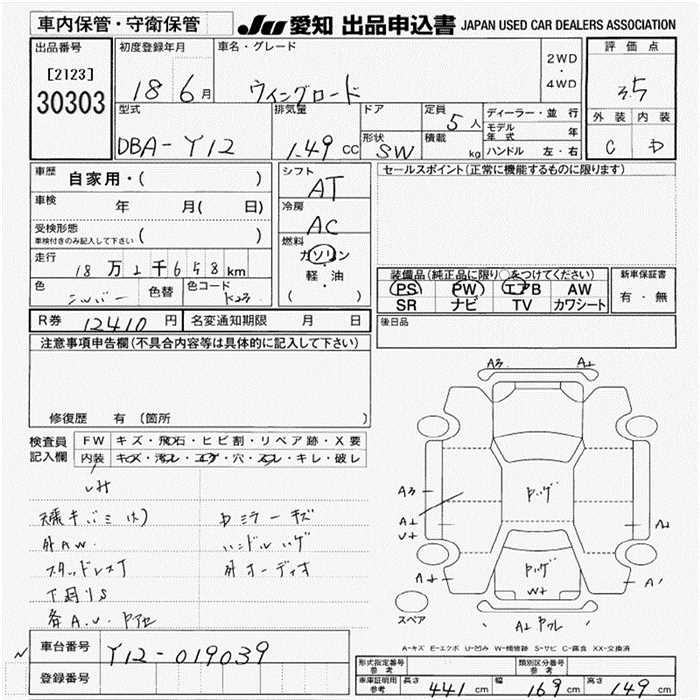 車内保管・守衛保管
JU 愛知 出品申込書 JAPAN USED CAR DEALERS ASSOCIATION
出品番号
[2123]
30303
初度登録年月
18 6月
車名・グレード
ウィングロード
2WD
・
4WD
評価点
3.5
外装 内装
C D
型式
DBA-Y12
排気量
1.49 CC
ドア
形状
SW
定員
5人
積載
kg
ディーラー・並行
モデル年式 年
ハンドル 左・右
車歴
自家用・( )
車検
年 月( 日)
受検形態
車検付きのみ記入して下さい ( )
走行
18万2千658km
色
シルバー
色替
色コード
K23
シフト
AT
冷房
AC
燃料
ガソリン
・
軽・油
( )
セールスポイント(正常に機能するものに限ります)
装備品(純正品に限り○をつけてください)
PS PW エアB AW
SR ナビ TV カワシート
新車保証書
有・無
後日品
R券 12410 円
名変通知期限 月 日
注意事項申告欄(不具合内容等は具体的に記入して下さい)
修復歴 有(箇所
検査員
記入欄
FW キズ・飛石・ヒビ割・リペア跡・X要
内装 キズ・汚レ・コゲ・穴・スレ・キレ・破レ
外AW
スタッドレス
下廻りS
各A.U.
Dミラーキズ
ハンドルハゲ
外オーディオ
A3
A2
A3
A2
U2
ハゲ
ハゲ
W2
A2
A2
A1
A2
スペア
A-キズ E-エクボ U-凹み W-補修跡 S-サビ C-腐食 XX-交換済
車台番号
Y12-019039
登録番号
N
形式指定番号
参考
類別区分番号
参考
車庫証明用
参考
長さ 441 cm
幅 169 cm
高さ 149 cm